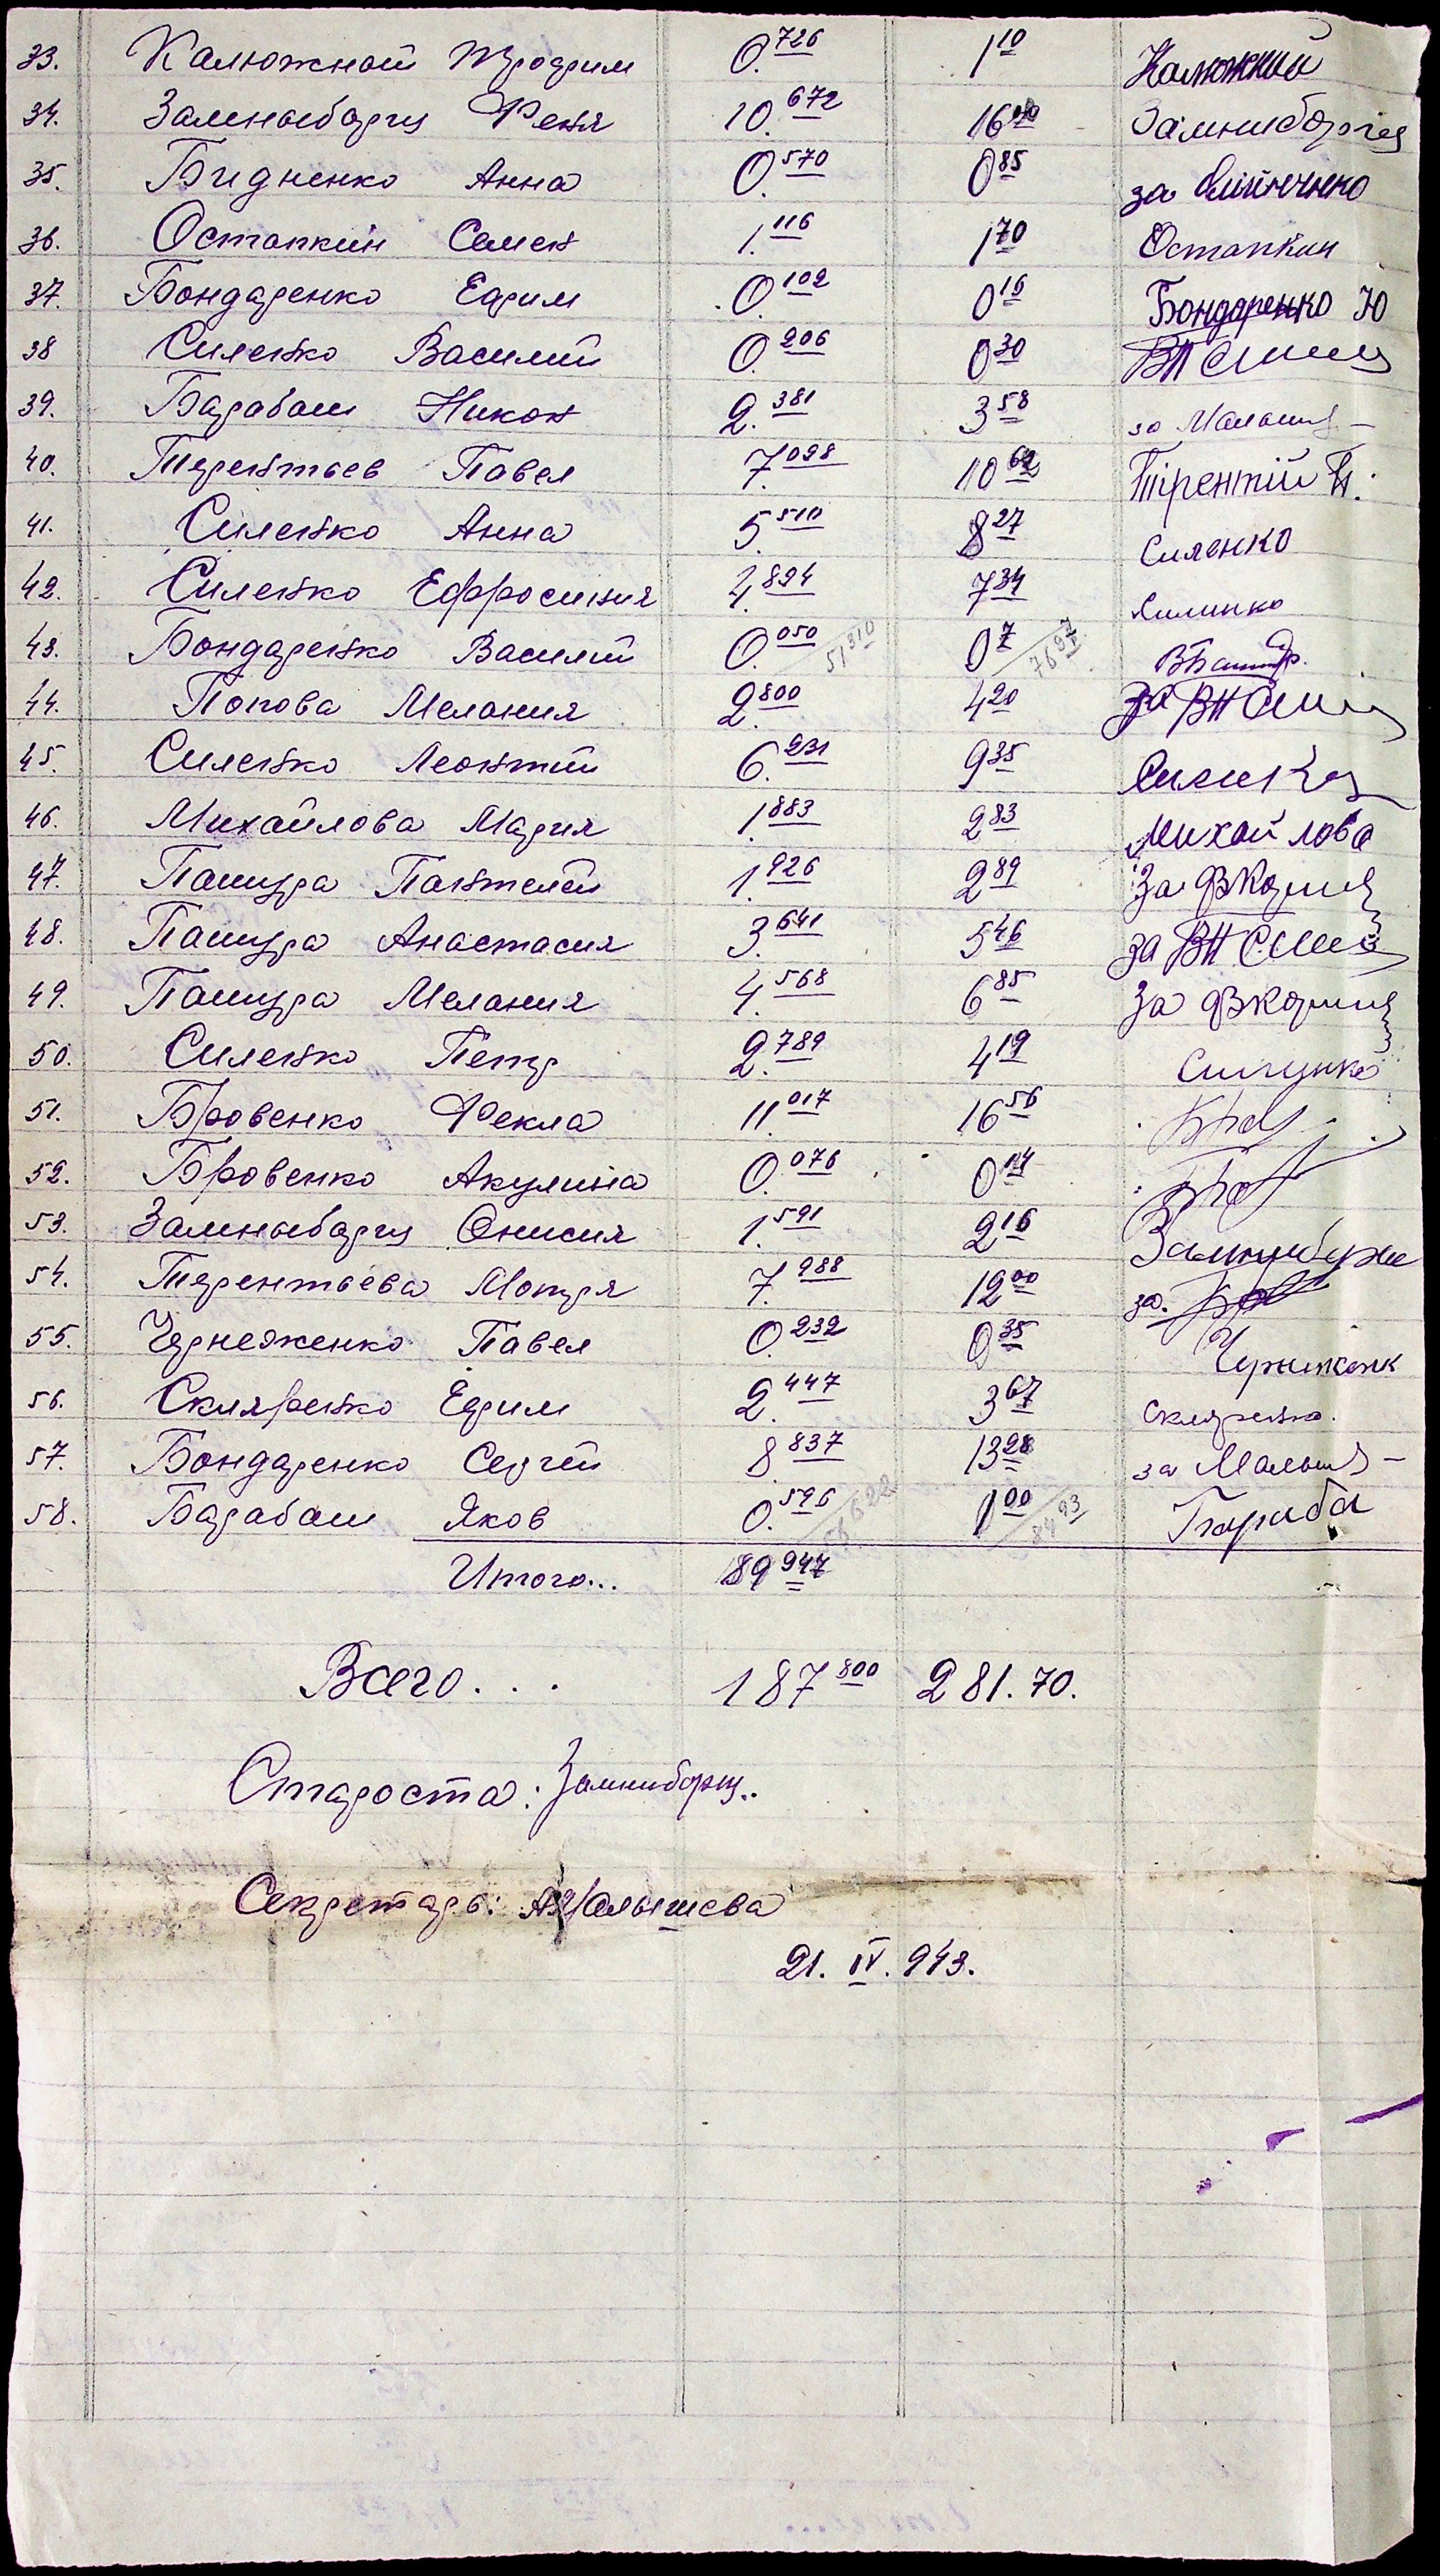 33. Калюжной Трофим 0.726 1 10 Калюжний
34. Замныборщ Феня 10.672 16 Замниборщ
35. Бидненко Анна 0.570 0 85 за
36. Остапкин Семен 1.116 1 70 Остапкин
37. Бондаренко Ефим 0.102 0 16 Бондаренко Ю
38 Силенко Василий 0.206 0 30
39. Барабаш Никон 2.381 3 58 за
40. Терентьев Павел 7.098 10 62 Тірентій П.
41. Силенко Анна 5.510 8 27 Силенко
42. Силенко Ефросиния 4.894 7 34 Силинко
43. Бондаренко Василий 0.050 0 7
51 310 76 97
44. Попова Мелания 2.800 4 20 За
45. Силенко Леонтий 6.231 9 35
46. Михайлова Мария 1.883 2 83 Михайлова
47. Пашура Пантелей 1.926 2 89 За
48. Пашура Анастасия 3.641 5 46 за
49. Пашура Мелания 4.568 6 85 За
50. Силенко Петр 2.789 4 19
51. Бровенко Фекла 11.017 16 56
52. Бровенко Акулина 0.076 0 14
53. Замныборщ Онисия 1.591 2 16
54. Терентьева Мотря 7.988 12 00 за.
55. Чернеженко Павел 0.232 0 35
56. Скляренко Ефим 2.447 3 67 Скляренко.
57. Бондаренко Сергей 8.837 13 28 за
58. Барабаш Яков 0.596 1 00
84 93
Итого... 89 947
Всего... 187 800 281.70.
Староста: Замниборщ..
Секретарь: Малышева
21. IV. 943.